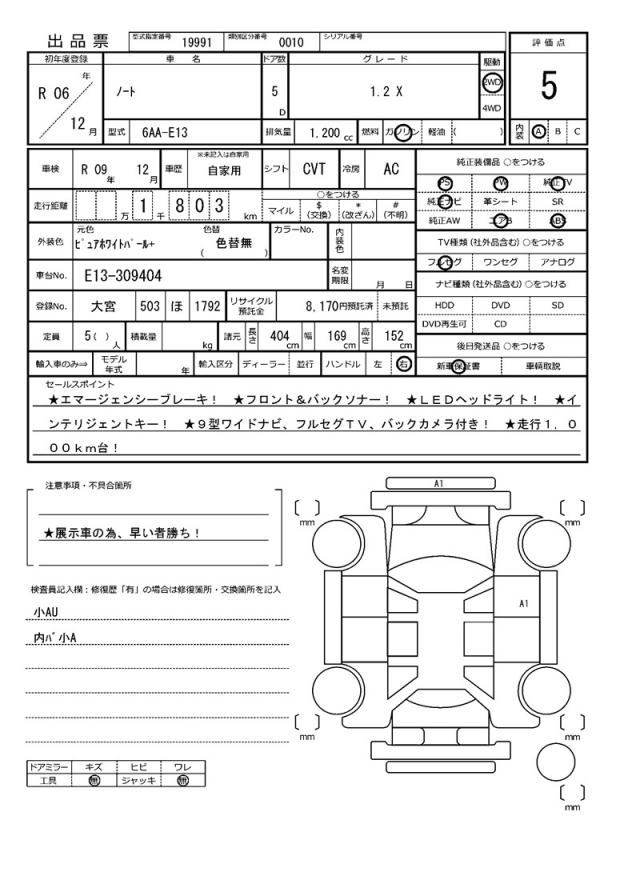 出品票 型式指定番号 19991 類別区分番号 0010 シリアル番号
評価点
5
内装 A B C
初年度登録 車名 ドア数 グレード 駆動
R 06 年 12 月
ノート 5 D 1.2 X 2WD 4WD
型式 6AA-E13 排気量 1.200 cc 燃料 ガソリン 軽油 ( )
車検 R 09 年 12 月 車歴 ※未記入は自家用 自家用 シフト CVT 冷房 AC
走行距離 万 1 千 8 0 3 km
○をつける
マイル $ (交換) * (改ざん) # (不明)
外装色 元色 ピュアホワイトパール+ 色替 ( 色替無 ) カラーNo. 内装色
車台No. E13-309404 名変期限 月 日
登録No. 大宮 503 ほ 1792 リサイクル預託金 8,170円預託済 未預託
定員 5( ) 人 積載量 kg 諸元 長さ 404 cm 幅 169 cm 高さ 152 cm
輸入車のみ⇒ モデル年式 年 輸入区分 ディーラー 並行 ハンドル 左 右
純正装備品 ○をつける
PS PW 純正TV
純正ナビ 革シート SR
純正AW エアB ABS
TV種類 (社外品含む) ○をつける
フルセグ ワンセグ アナログ
ナビ種類 (社外品含む) ○をつける
HDD DVD SD
DVD再生可 CD
後日発送品 ○をつける
新車保証書 車輌取説
セールスポイント
★エマージェンシーブレーキ! ★フロント&バックソナー! ★LEDヘッドライト! ★イ
ンテリジェントキー! ★9型ワイドナビ、フルセグTV、バックカメラ付き! ★走行1.0
00km台!
注意事項・不具合箇所
★展示車の為、早い者勝ち!
検査員記入欄:修復歴「有」の場合は修復箇所・交換箇所を記入
小AU
内バ小A
ドアミラー キズ ヒビ ワレ
工具 無 ジャッキ 無
A1
mm
mm
A1
mm
mm
mm